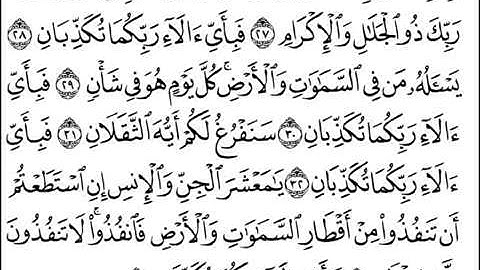 رَبِّكَ ذُو الْجَلَالِ وَالْإِكْرَامِ ٢٧ فَبِأَيِّ ءَالَآءِ رَبِّكُمَا تُكَذِّبَانِ ٢٨
يَسْـَٔلُهُۥ مَن فِى السَّمَٰوَٰتِ وَالْأَرْضِ ۚ كُلَّ يَوْمٍ هُوَ فِى شَأْنٍ ٢٩ فَبِأَيِّ
ءَالَآءِ رَبِّكُمَا تُكَذِّبَانِ ٣٠ سَنَفْرُغُ لَكُمْ أَيُّهَ الثَّقَلَانِ ٣١ فَبِأَيِّ
ءَالَآءِ رَبِّكُمَا تُكَذِّبَانِ ٣٢ يَٰمَعْشَرَ الْجِنِّ وَالْإِنسِ إِنِ اسْتَطَعْتُمْ
أَن تَنفُذُوا۟ مِنْ أَقْطَارِ السَّمَٰوَٰتِ وَالْأَرْضِ فَانفُذُوا۟ ۚ لَا تَنفُذُونَ